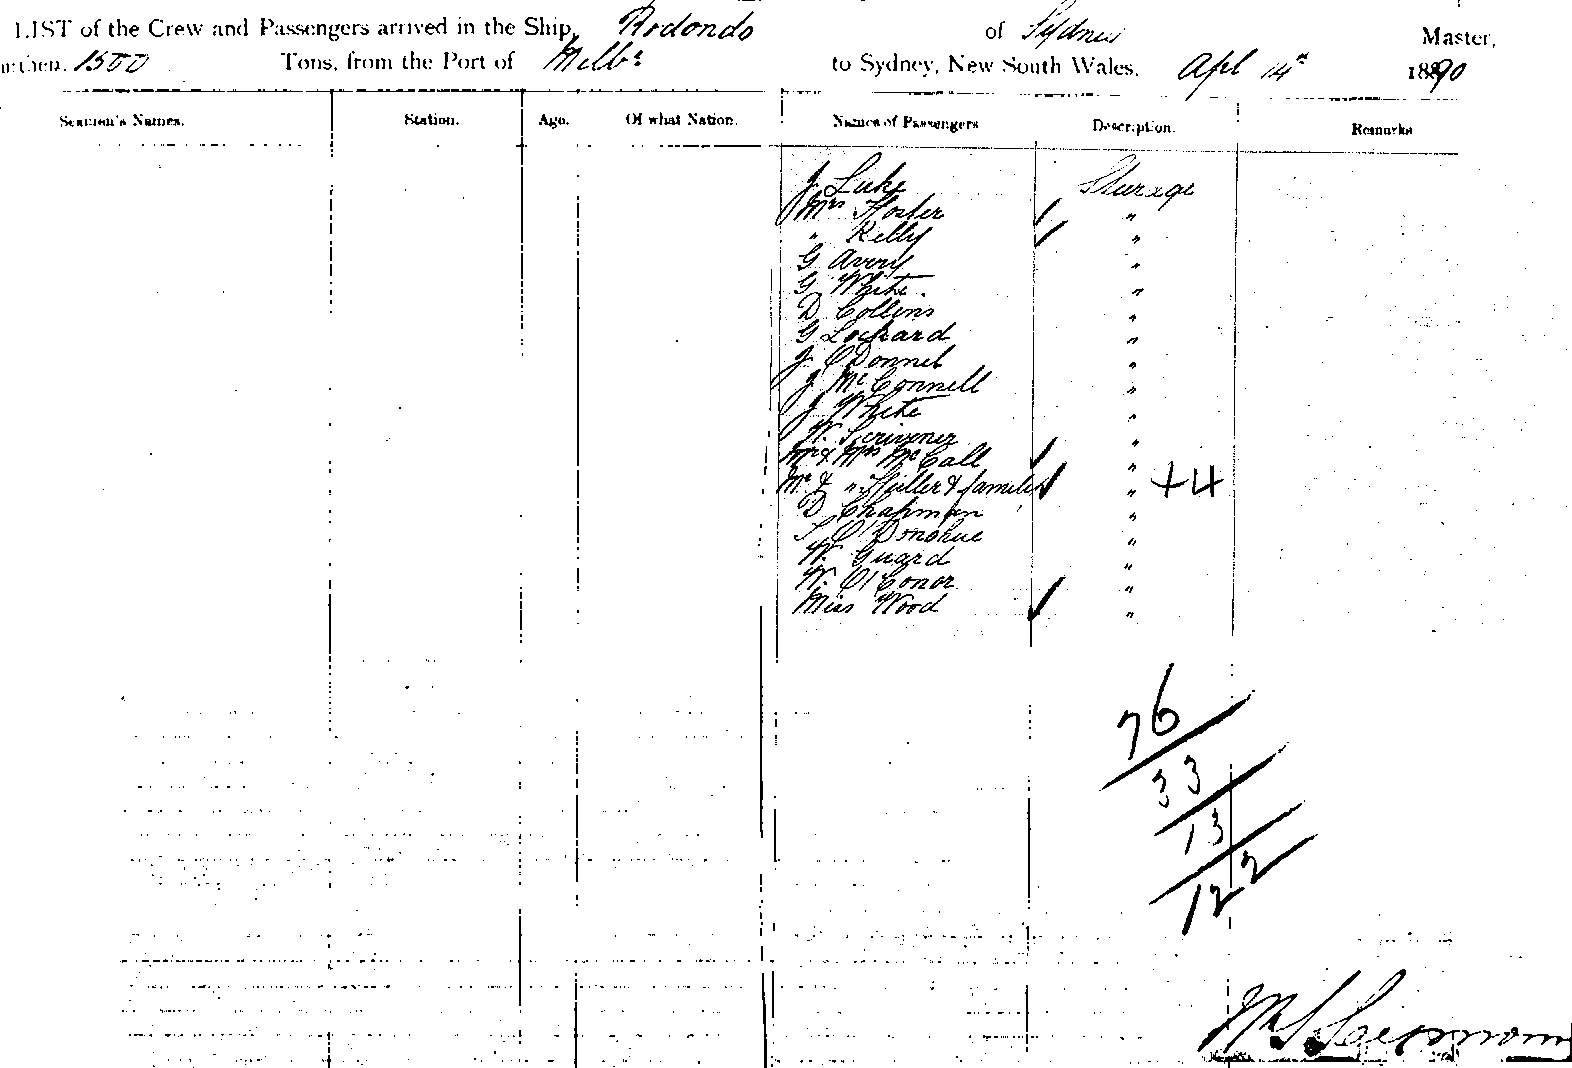 LIST of the Crew and Passengers arrived in the Ship, Rodondo of Sydney Master,
1500 Tons, from the Port of Melbe to Sydney, New South Wales, Apl 14th 1890
Seamen's Names. Station. Age. Of what Nation. Names of Passengers Description. Remarks
J Luke Steerage
Mrs Foster ✓ "
" Kelly ✓ "
G Avory "
G White. "
D Collins "
G Lockard "
J O'Donnel "
J McConnell "
J White "
W. Scrivener "
Mr & Mrs McCall ✓ "
Mr & " & family ✓ " +4
D Chapman "
O'Donohue "
W. Guard "
W. O'Conor "
Miss Wood ✓ "
76
33
13
122